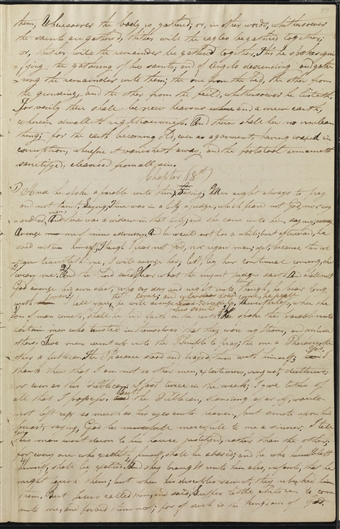 them, Wheresoever the body is gathered; or, in other words, whithersoever
the saints are gathered; thither will the eagles be gathered together;
or, thither will the remainder be gathered together. This he spake signi
fying the gathering of his saints, and of angels descending and gathe
ring the remainder unto them; the one from the bed, the other from
the grinding, and the other from the field, whithersoever he listeth.
For verily there shall be new heavens and a new earth,
wherein dwelleth righteousness. And there shall be no unclean
thing; for the earth becoming old, even as a garment, having waxed in
corruption, wherefore it vanisheth away, and the footstool remaineth
sanctified, cleansed from all sin.
Chapter 18th
And he spake a parable unto them, saying, Men ought always to pray
and not faint; Saying, There was in a city a judge, which feared not God, nor reg
arded man. And there was a widow in that city, and she came unto him, saying,
Avenge me of mine adversary. And he would not for a while, but afterward, he
said within himself, Though I fear not God, nor regard man; yet, because this wi
dow troubleth me, I will avenge her; lest, by her continual coming, she
weary me. And the Lord said, Hear what the unjust judge saith. And shall not
God avenge his own elect, who cry day and night unto him, though he bear long
with I tell you, he will come, and when he does come, he
will avenge his saints speedily. Nevertheless, when the
Son of man cometh, shall he find faith on the earth? He spake this parable unto
certain men who trusted in themselves that they were righteous, and despised
others. Two men went up into the temple to pray; the one a Pharisee,
the other a publican. The Pharisee stood and prayed thus with himself; God I
thank thee that I am not as other men, extortioners, unjust, adulterers,
or even as this publican. I fast twice in the week; I give tithes of
all that I possess. But the Publican, standing afar off, would
not lift up so much as his eyes unto heaven, but smote upon his
breast, saying, God be merciful to me a sinner. I tell
you this man went down to his house justified, rather than the other;
for every one who exalteth himself, shall be abased; and he who humbleth
himself, shall be exalted. And they brought unto him also, infants, that he
might touch them; but when his disciples saw it, they rebuked
them. But Jesus called them, and said, Suffer little children to come
unto me, and forbid them not; for of such is the kingdom of God.